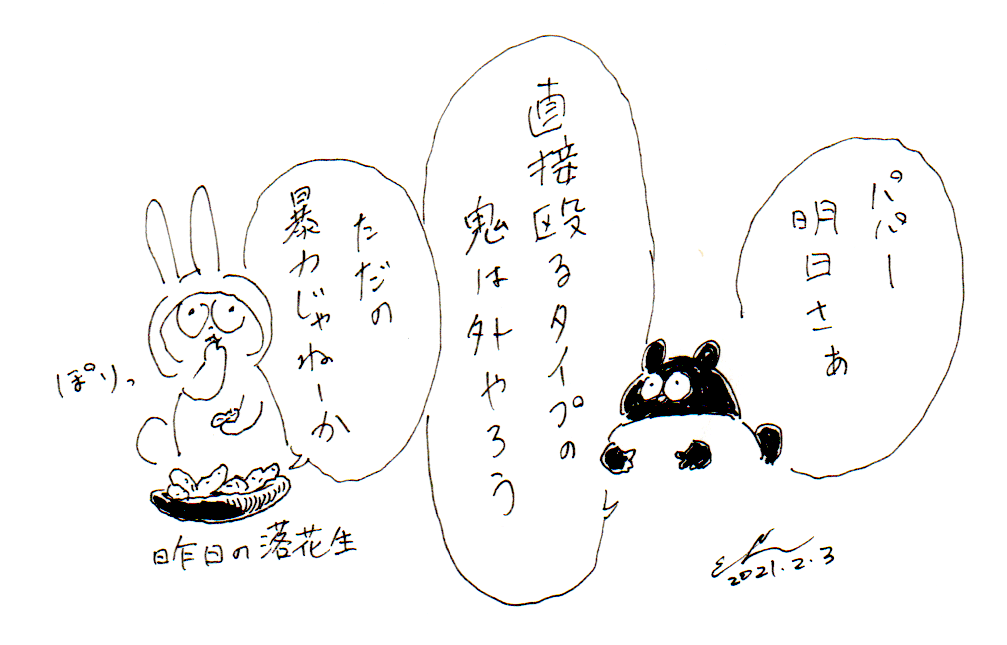 パパー
明日さぁ
直接殴るタイプの
鬼は外やろう
ただの
暴力じゃねーか
ぽりっ
昨日の落花生
2021.2.3